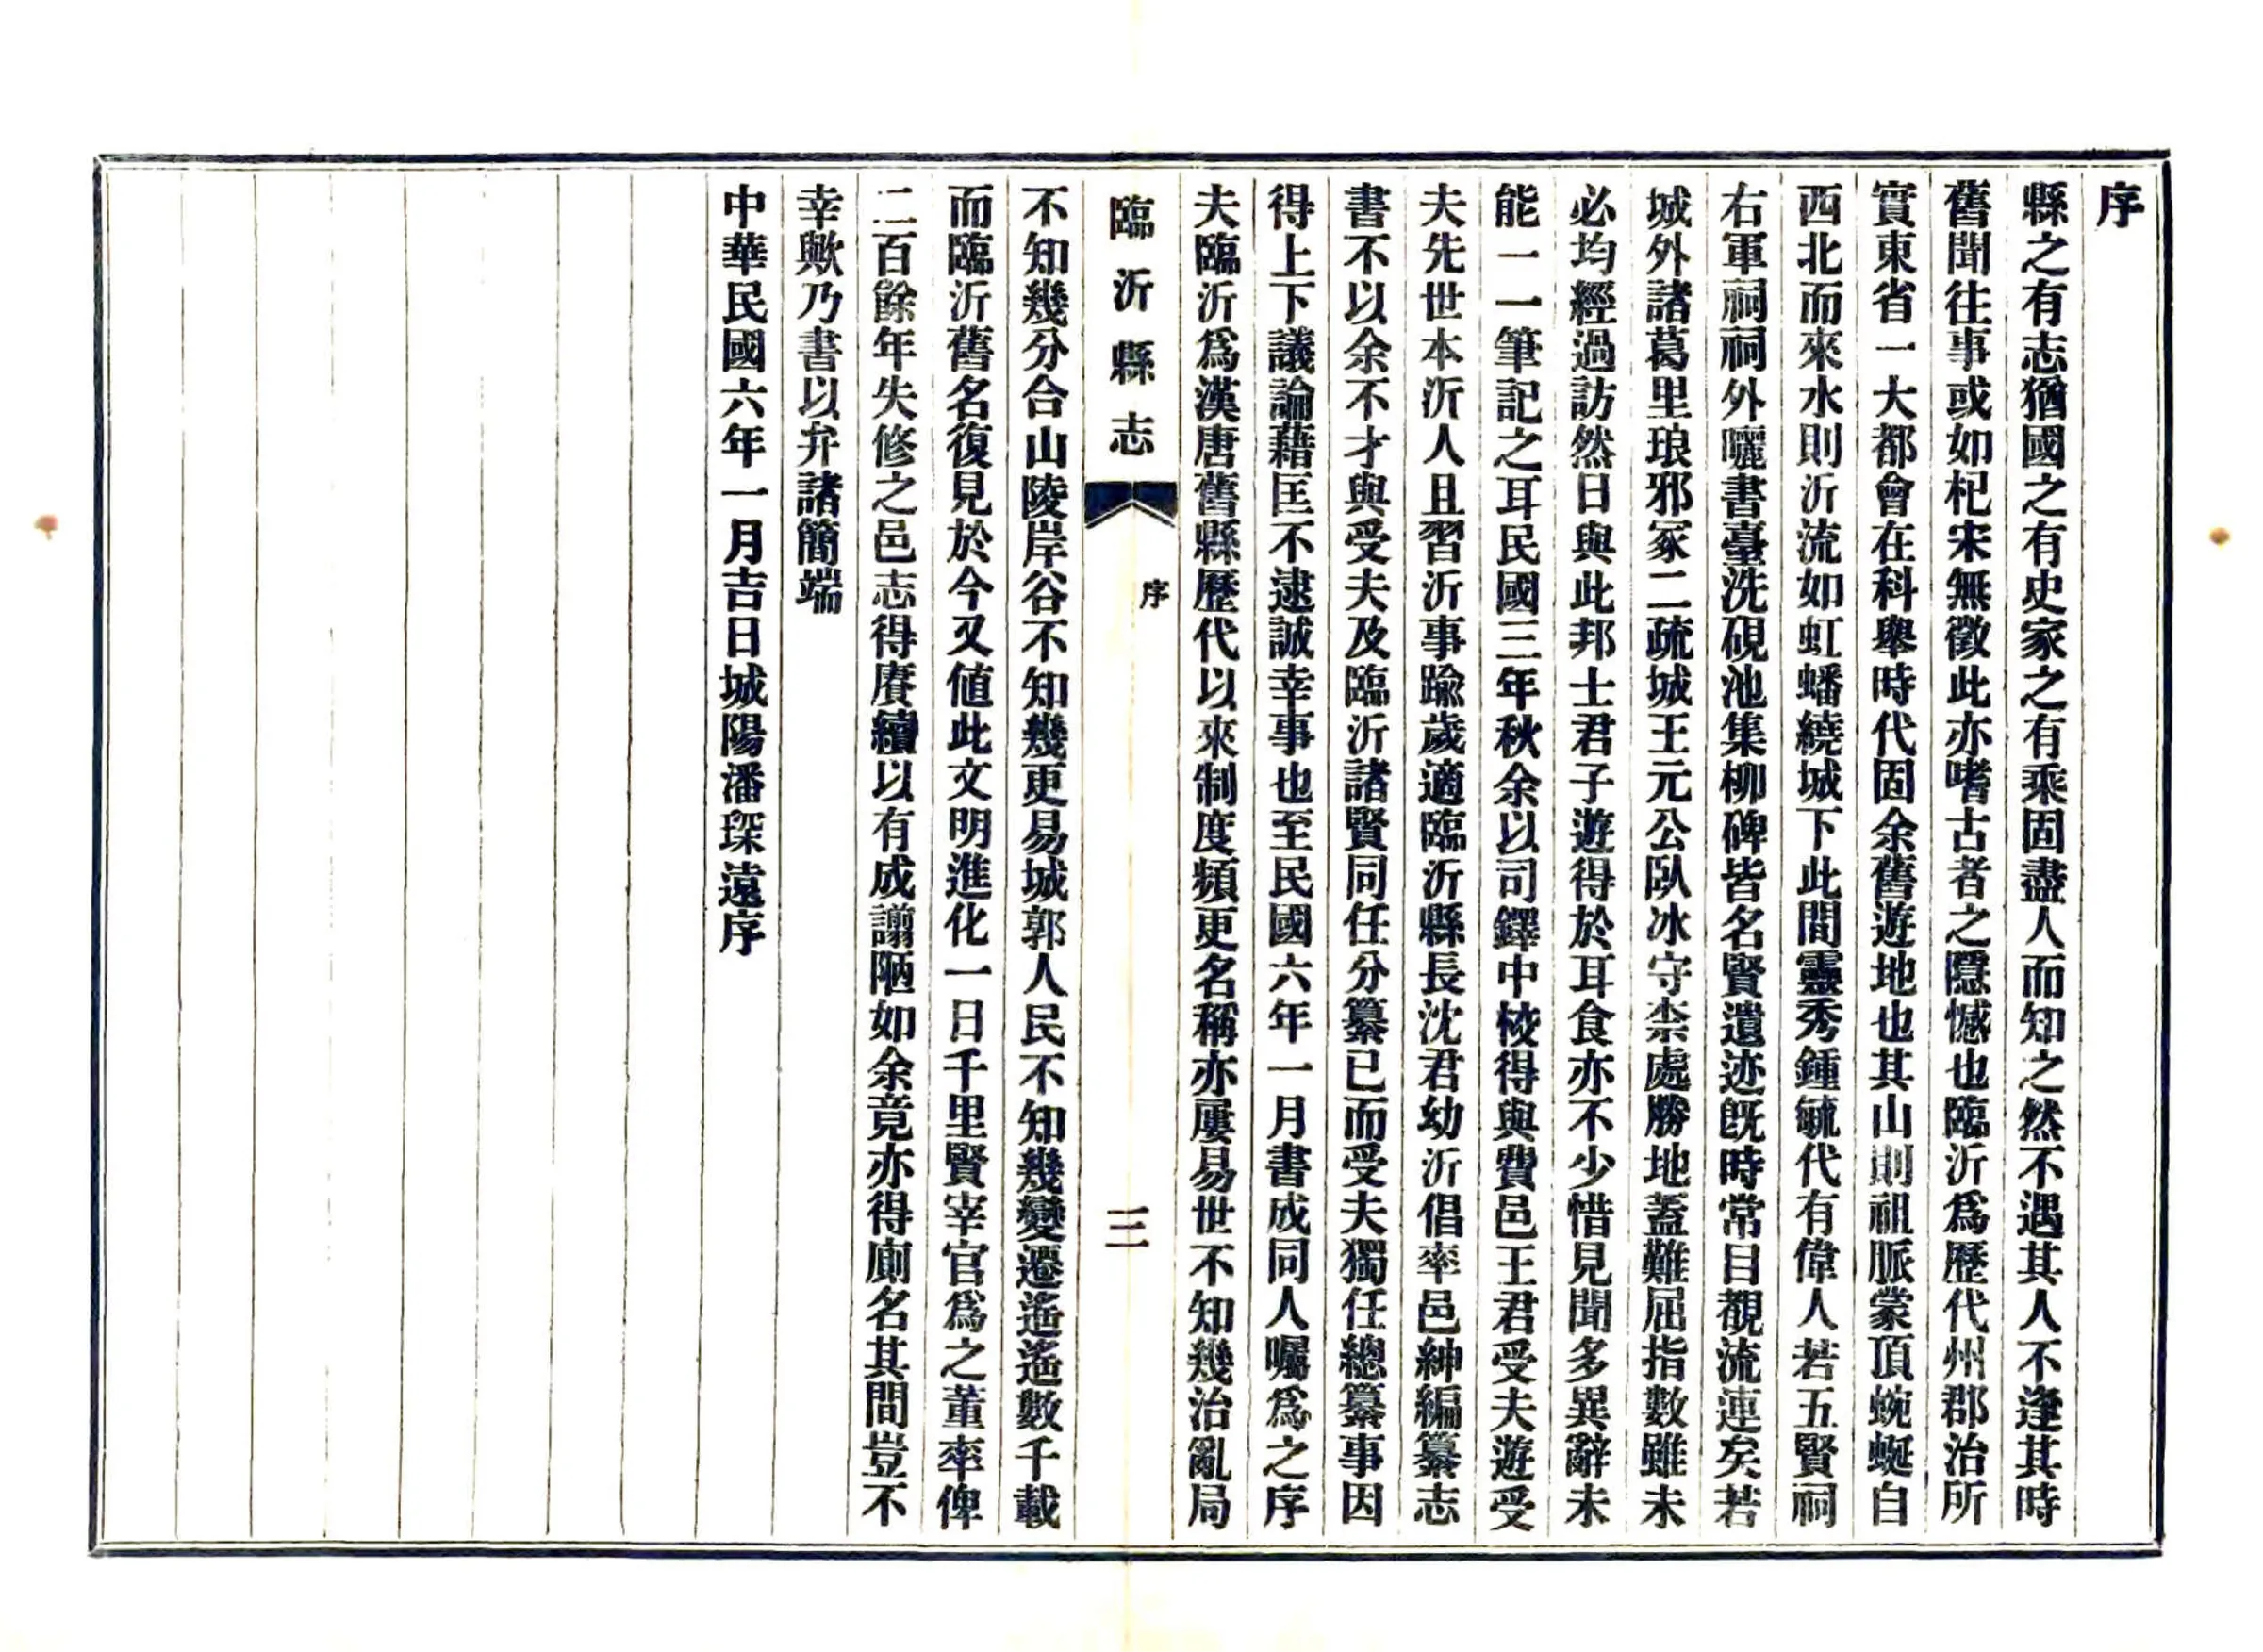 序
縣之有志猶國之有史家之有乘固盡人而知之然不遇其人不逢其時
舊聞往事或如杞宋無徵此亦嗜古者之隱憾也臨沂爲歷代州郡治所
實東省一大都會在科舉時代固余舊遊地也其山則祖脈蒙頂蜿蜒自
西北而來水則沂流如虹蟠繞城下此間靈秀鍾毓代有偉人若五賢祠
右軍祠祠外曬書臺洗硯池集柳碑皆名賢遺迹旣時常目覩流連矣若
城外諸葛里琅邪冢二疏城王元公臥冰守柰處勝地蓋難屈指數雖未
必均經過訪然日與此邦士君子遊得於耳食亦不少惜見聞多異辭未
能一一筆記之耳民國三年秋余以司鐸中校得與費邑王君受夫遊受
夫先世本沂人且習沂事踰歲適臨沂縣長沈君幼沂倡率邑紳編纂志
書不以余不才與受夫及臨沂諸賢同任分纂已而受夫獨任總纂事因
得上下議論藉匡不逮誠幸事也至民國六年一月書成同人囑爲之序
夫臨沂爲漢唐舊縣歷代以來制度頻更名稱亦屢易世不知幾治亂局
臨沂縣志
序
三
不知幾分合山陵岸谷不知幾更易城郭人民不知幾變遷遙遙數千載
而臨沂舊名復見於今又値此文明進化一日千里賢宰官爲之董率俾
二百餘年失修之邑志得賡續以有成謭陋如余竟亦得廁名其間豈不
幸歟乃書以弁諸簡端
中華民國六年一月吉日城陽潘琛遠序